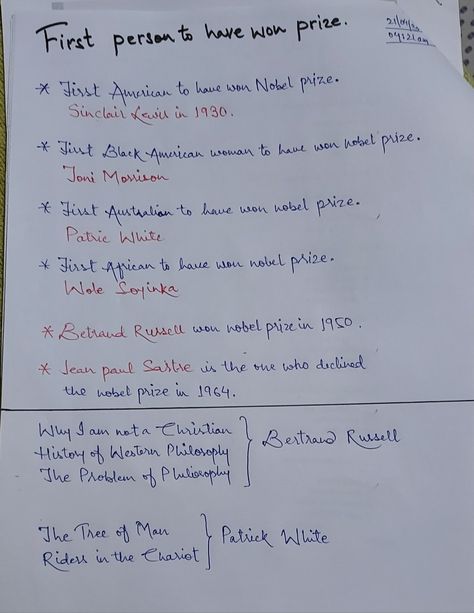 First person to have won prize.
* First American to have won Nobel prize.
Sinclair Lewis in 1930.
* First Black-American woman to have won nobel prize.
Toni Morrison
* First Australian to have won nobel prize.
Patric White
* First African to have won nobel prize.
Wole Soyinka
* Betrand Russell won nobel prize in 1950.
* Jean paul Sastre is the one who declined
the nobel prize in 1964.
Why I am not a Christian
History of Western Philosophy
The Problem of Philiosophy
} Bertrand Russell
The Tree of Man
Riders in the Chariot
} Patrick White